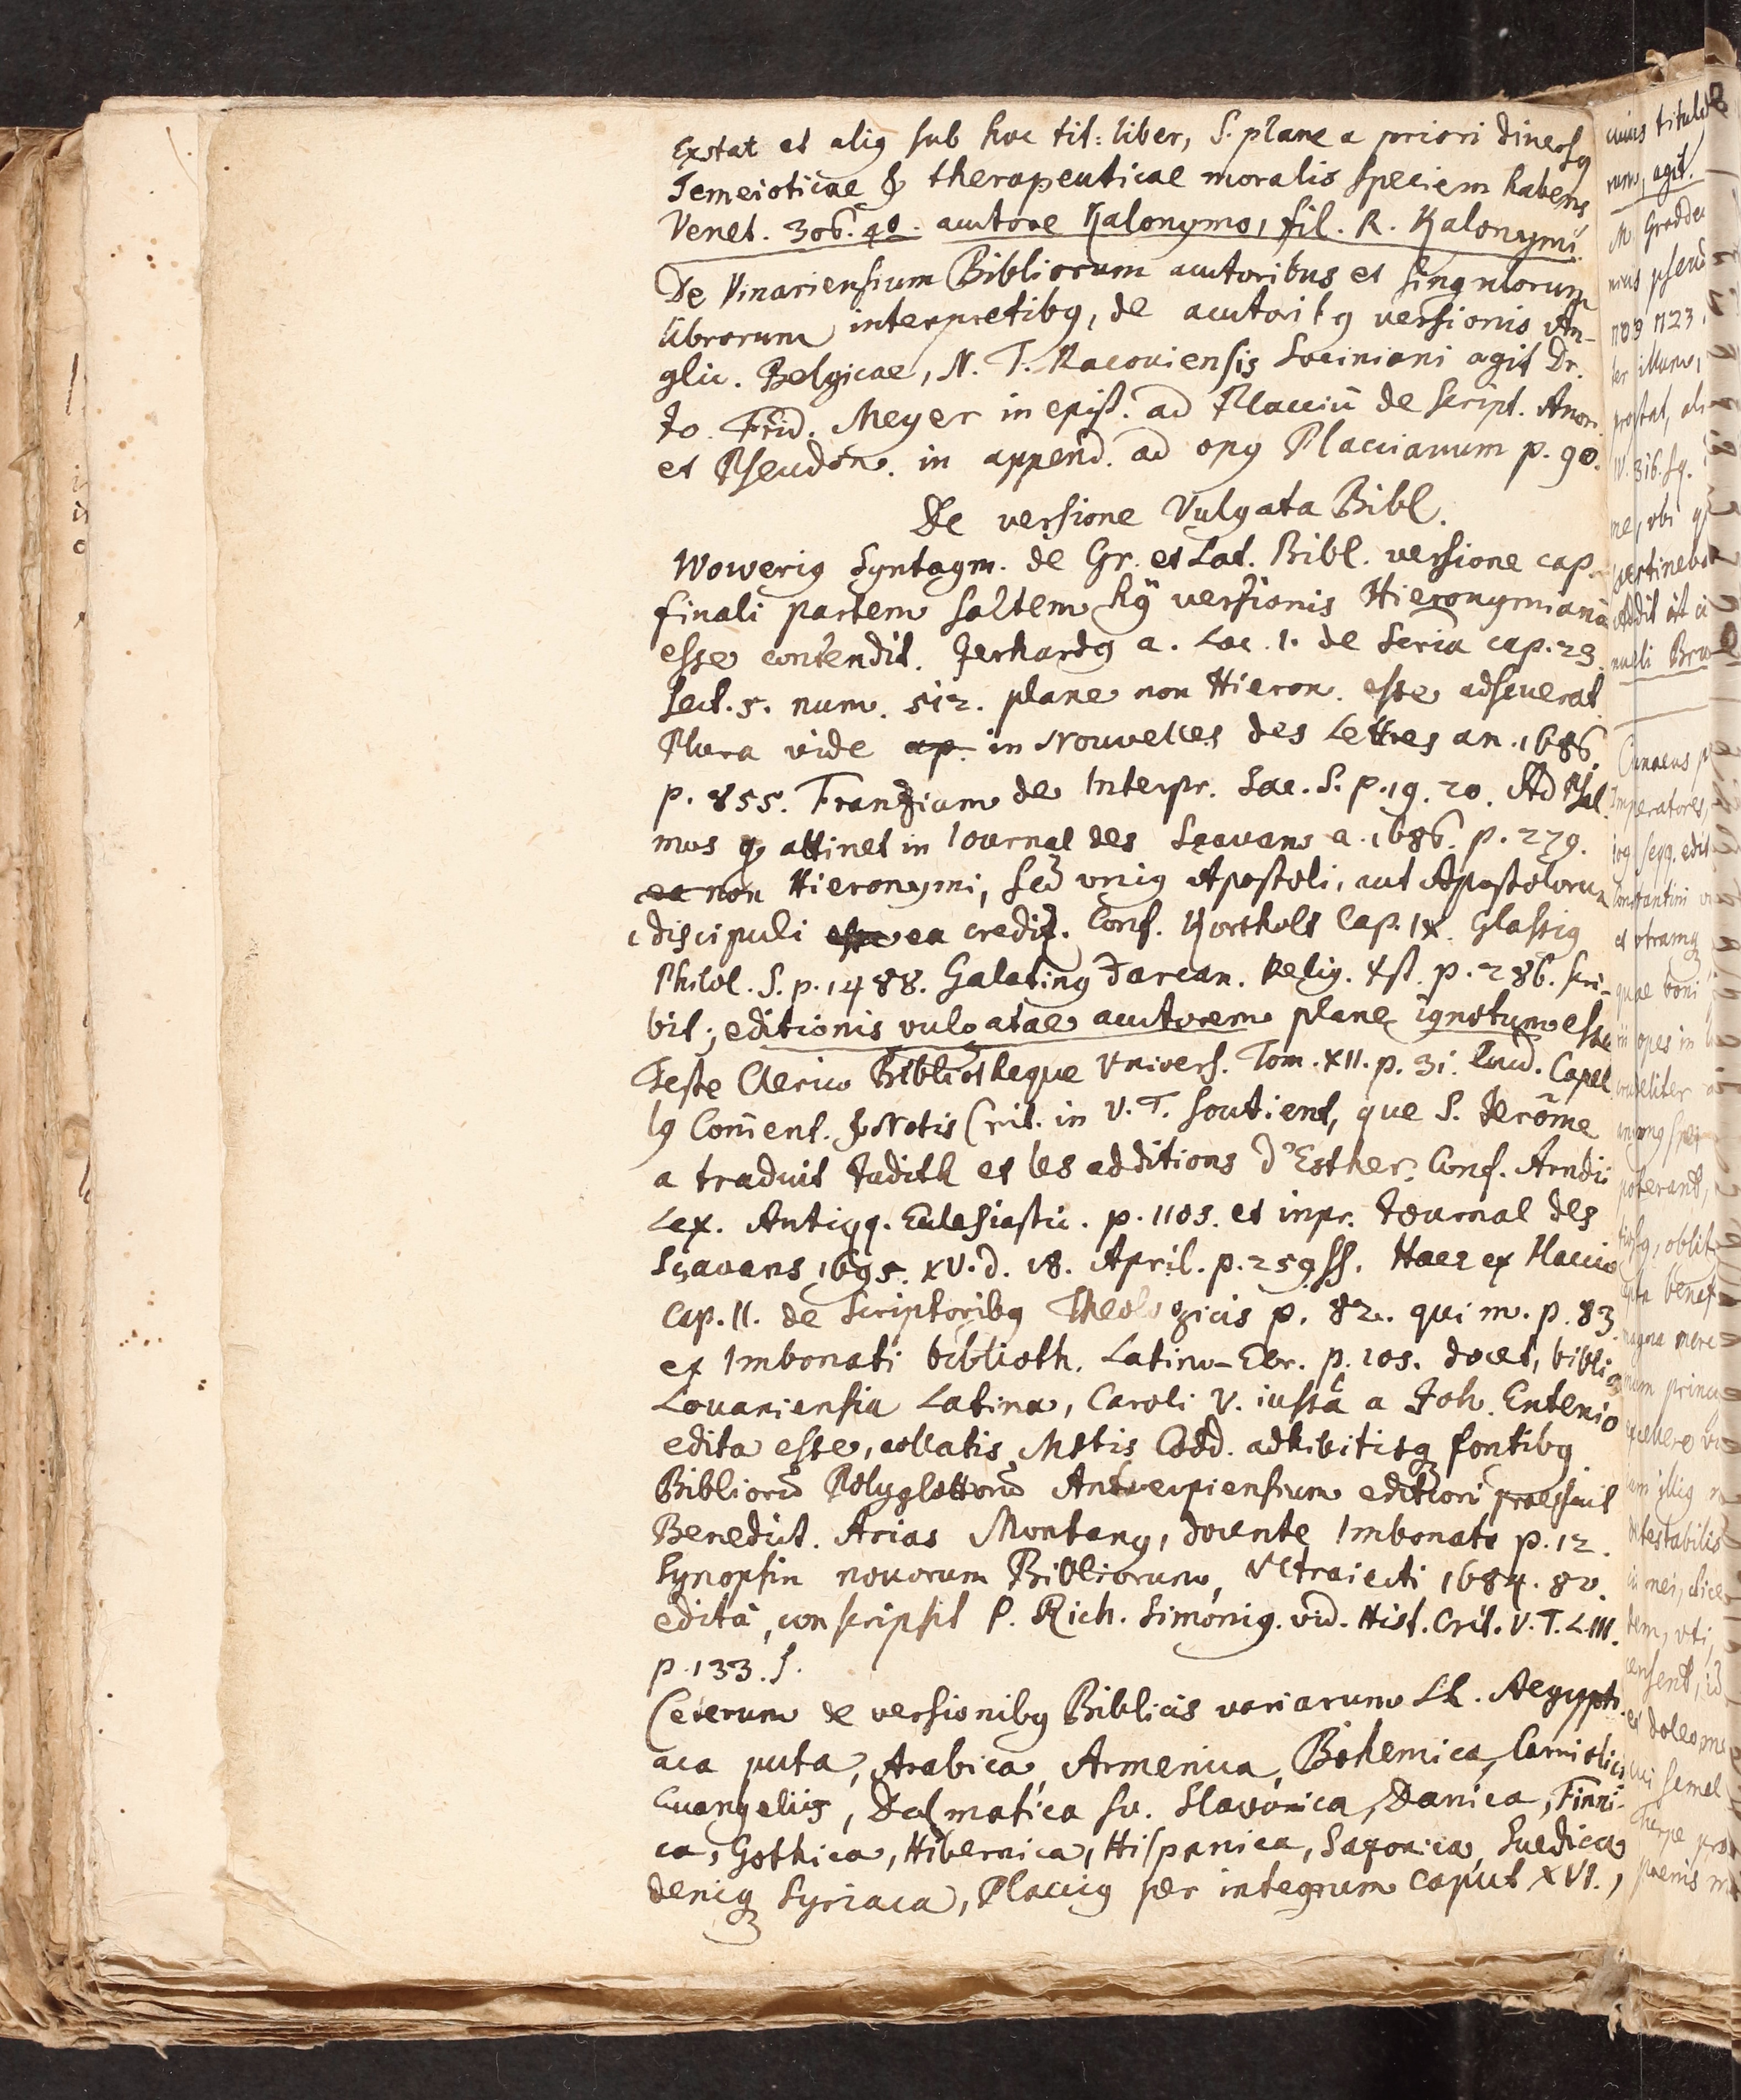 Exstat et aliꝯ sub hoc tit: liber, S. plane a priori diuersꝯ
Semeioticae & therapeuticae moralis speciem habens
Venet. 306. 40. autore Kalonymo, fil. R. Kalonymi.
De Vinariensium Bibliorum autoribus et singulorum
librorum interpretibꝯ, de autoritꝯ versionis An-
glic. Belgicae, N. T. Racouiensis Sociniani agit Dr.
Jo. Frid. Meyer in epist. ad Placciū de Script. Anon.
et Pseudon. in append. ad opꝯ Placcianum p. 90.
De versione Vulgata Bibl.
Woweriꝯ Syntagm. de Gr. et Lat. Bibl. versione cap.
finali partem saltem hꝯ versionis Hieronymianā
esse contendit. Gerhardꝯ a. Loc. 1. de Scria cap. 23.
Sect. 5. num. 512. plane non Hieron. esse adseuerat.
Plura vide ap. in Nouvelles des Lettres an. 1686.
p. 855. Franzium de Interpr. Sac. S. p. 19. 20. Ad Psal
mos q attinet in Iournal des Scavans a. 1686. p. 279.
ea non Hieronymi, sed vniꝯ Apostoli, aut Apostolorum
discipuli esse ea credit. Conf. Kortholt Cap. IX. Glassiꝯ
Philol. S. p. 1488. Galatinꝯ d arcan. Relig. Xst. p. 286. scri-
bit; editionis vulgatae autorem plane ignotum esse
Teste Clerico Bibliotheque Vnivers. Tom. XII. p. 31. Lud. Capel
lꝯ Com̄ent. & Notis Crit. in V. T. soutient, que S. Jerôme
a traduit Judith et les additions d'Esther. Conf. Arndii
Lex. Antiqq. Ecclesiastic. p. 1103. et inpr. Journal des
Sçavans 1695. XV. d. 18. April. p. 259 ss. Haec ex Placcio
Cap. II. de Scriptoribꝯ Theologicis p. 82. qui m. p. 83.
ex Imbonati biblioth. Latino-Ebr. p. 105. docet, biblia
Louaniensia Latina, Caroli V. iussu a Joh. Entenio
edita esse, collatis Mstis Codd. adhibitisq fontibꝯ
Bibliorū Polyglottorū Antverpiensium editioni praefuit
Benedict. Arias Montanꝯ, docente Imbonato p. 12.
Synopsin nouorum Bibliorum, Vltraiecti 1684. 80.
editā, conscripsit P. Rich. Simoniꝯ. vid. Hist. Crit. V. T. L. III.
p. 133. s.
Ceterum de versionibꝯ Biblicis variarum LL. Aegypti-
aca puta, Arabica, Armenica, Bohemica, Carniolicis
Euangeliis, Dalmatica su. Slavonica, Danica, Finni-
ca, Gothica, Hibernica, Hispanica, Saxonica, Suedica
deniq Syriaca, Placciꝯ per integrum caput XVI.,